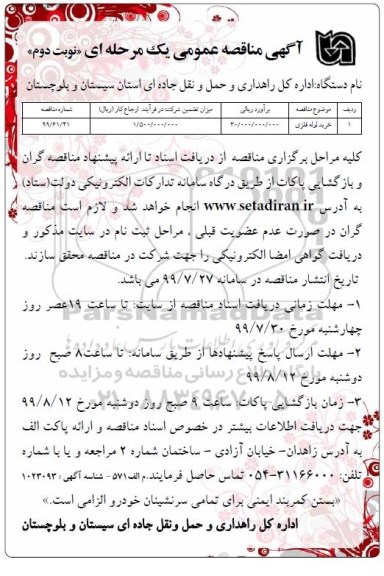 آگهی مناقصه عمومی یک مرحله ای «نوبت دوم»
نام دستگاه:اداره کل راهداری و حمل و نقل جاده ای استان سیستان و بلوچستان
ردیف موضوع مناقصه برآورد ریالی میزان تضمین شرکت در فرآیند ارجاع کار (ریال) شماره مناقصه
۱ خرید لوله فلزی ۳۰/۰۰۰/۰۰۰/۰۰۰ ۱/۵۰۰/۰۰۰/۰۰۰ ۹۹/۶۱/۴۱
کلیه مراحل برگزاری مناقصه از دریافت اسناد تا ارائه پیشنهاد مناقصه گران
و بازگشایی پاکات از طریق درگاه سامانه تدارکات الکترونیکی دولت(ستاد)
به آدرس www.setadiran.ir انجام خواهد شد و لازم است مناقصه
گران در صورت عدم عضویت قبلی ، مراحل ثبت نام در سایت مذکور و
دریافت گواهی امضا الکترونیکی را جهت شرکت در مناقصه محقق سازند.
تاریخ انتشار مناقصه در سامانه ۹۹/۷/۲۷ می باشد.
۱- مهلت زمانی دریافت اسناد مناقصه از سایت: تا ساعت ۱۹عصر روز
چهارشنبه مورخ ۹۹/۷/۳۰
۲- مهلت ارسال پاسخ پیشنهادها از طریق سامانه: تا ساعت۸ صبح روز
دوشنبه مورخ ۹۹/۸/۱۲
۳- زمان بازگشایی پاکات: ساعت ۹ صبح روز دوشنبه مورخ ۹۹/۸/۱۲
جهت دریافت اطلاعات بیشتر در خصوص اسناد مناقصه و ارائه پاکت الف
به آدرس زاهدان- خیابان آزادی - ساختمان شماره ۲ مراجعه و یا با شماره
تلفن: ۳۱۱۶۶۰۰۰-۰۵۴ تماس حاصل فرمایند.م الف۵۷۱ - شناسه آگهی : ۱۰۲۳۰۹۳
«بستن کمربند ایمنی برای تمامی سرنشینان خودرو الزامی است.»
اداره کل راهداری و حمل ونقل جاده ای سیستان و بلوچستان